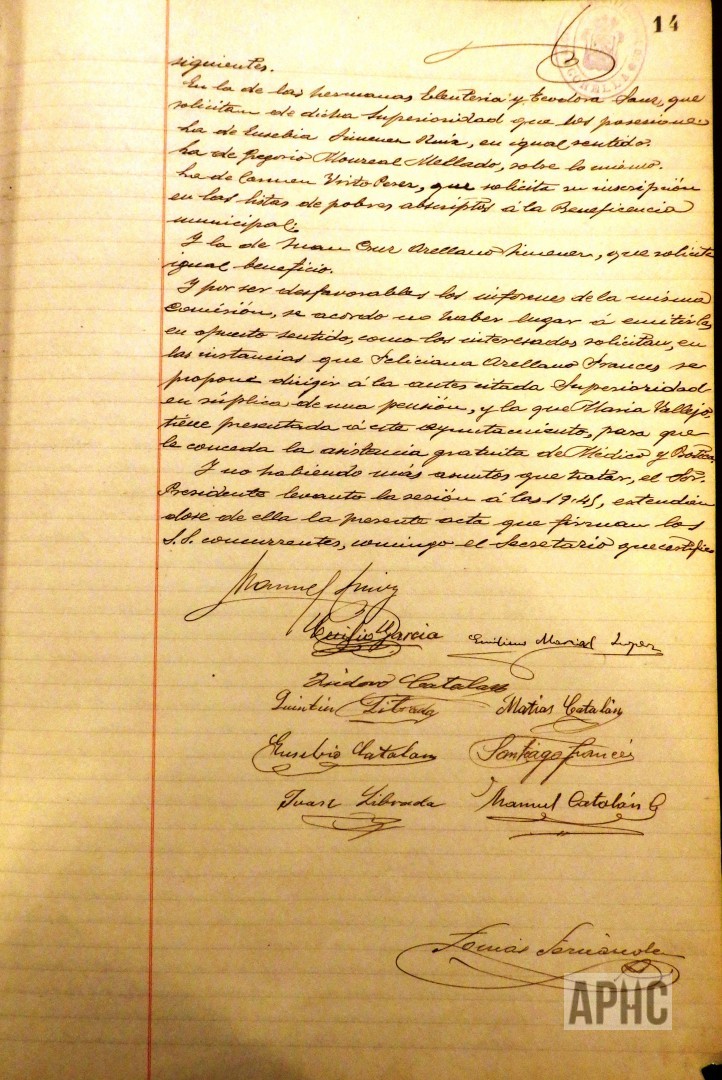 14
siguientes.
En la de las hermanas Elenteria y Teodora Sanz, que
solicitan de dicha Superioridad que los posesione.
La de Eusebia Jimenez Ruiz, en igual sentido.
La de Gregorio Monreal Mellado, sobre lo mismo.
La de Carmen Virto Perez, que solicita su inscripción
en las listas de pobres abscriptos á la Beneficencia
municipal.
Y la de Juan Cruz Arellano Jimenez, que solicita
igual beneficio.
Y por ser desfavorables los informes de la misma
Comisión, se acordo no haber lugar á emitirlos
en opuesto sentido, como los interesados solicitan, en
las instancias que Feliciana Arellano Frances se
propone dirigir á la antes citada Superioridad
en súplica de una pensión, y la que Maria Vallejo
tiene presentada á este Ayuntamiento, para que
le conceda la asistencia gratuita de Médico y Botica.
Y no habiendo más asuntos que tratar, el Sor.
Presidente levanto la sesión á las 19'45, extendien
dose de ella la presente acta que firman los
S.S. concurrentes, conmigo el Secretario que certifico
Manuel
García Emiliano Marial Lopez
Isidoro Catalan
Quintin Librada Matías Catalán
Eusebio Catalan Santiago Francés
Juan Librada Manuel Catalán G
Tomás Fernández
APHC